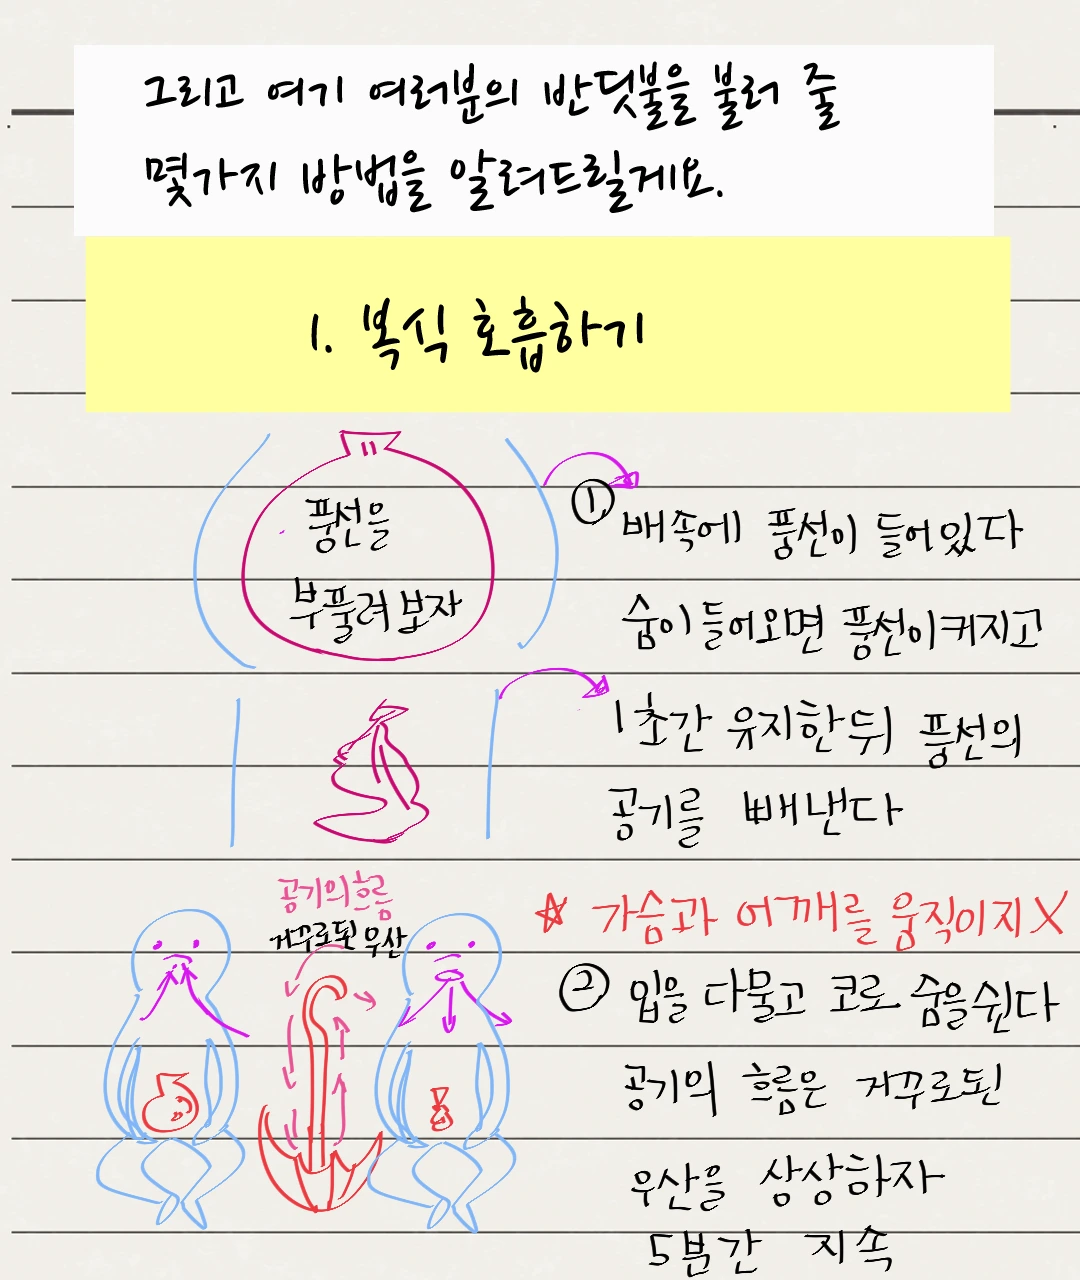 그리고 여기 여러분의 반딧불을 불러 줄
몇가지 방법을 알려드릴게요.
1. 복식 호흡하기
풍선을
부풀려보자
① 배속에 풍선이 들어있다
숨이 들어오면 풍선이커지고
1초간 유지한뒤 풍선의
공기를 빼낸다
공기의흐름
거꾸로된 우산
☆ 가슴과 어깨를 움직이지X
② 입을 다물고 코로 숨을쉰다
공기의 흐름은 거꾸로된
우산을 상상하자
5분간 지속